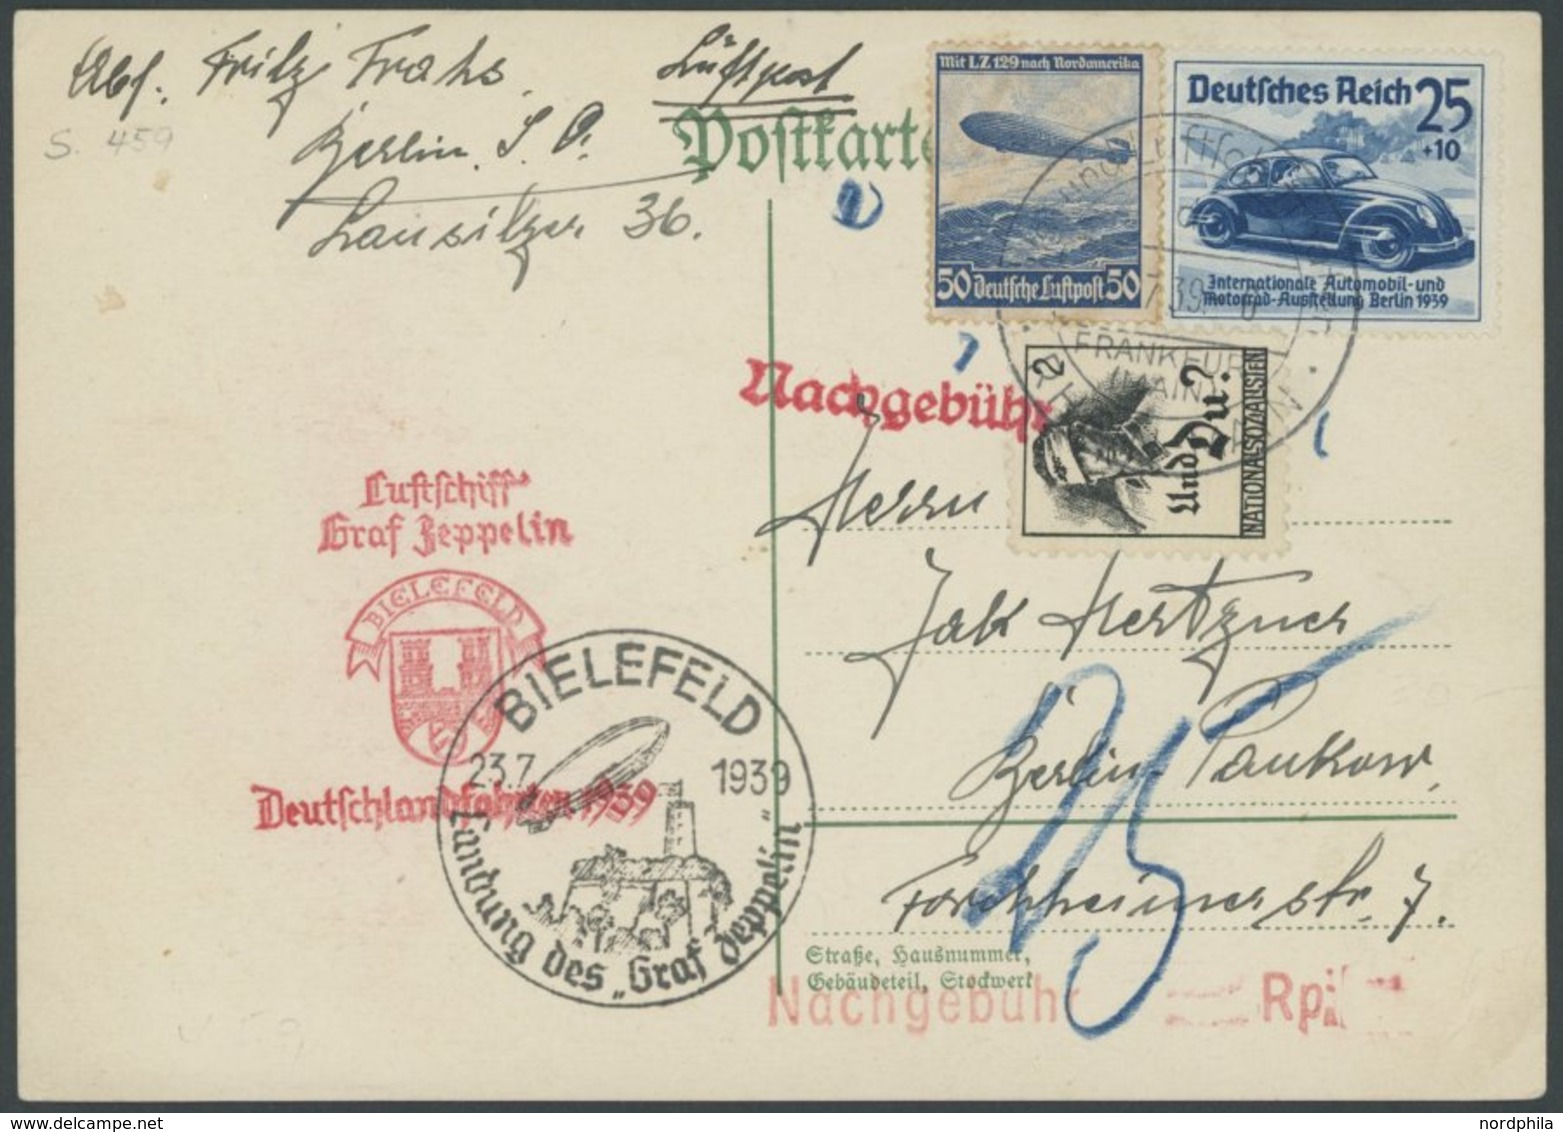 Abs. Fritz Trahs.
Berlin. S. O.
Lausitzer 36.
S. 459
Luftpost
Postkarte
Mit LZ 129 nach Nordamerika
50 Deutsche Luftpost 50
Deutsches Reich 25
+10
Internationale Automobil- und
Motorrad-Ausstellung Berlin 1939
39
FRANKFURT
(MAIN)
Nachgebühr
Und Du?
NATIONALSOZIALISTEN
Luftschiff
Graf Zeppelin
BIELEFELD
Deutschlandfahrten 1939
BIELEFELD
23.7. 1939
Landung des „Graf Zeppelin"
Herrn
Jak Mertzner
Berlin-Pankow,
Forchheimerstr. 7.
Straße, Hausnummer,
Gebäudeteil, Stockwerk
Nachgebühr Rpf
nordphila